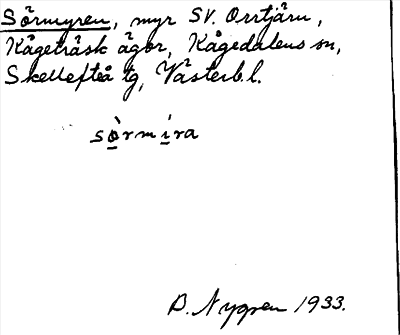 Sörmyren, myr SV. Orrtjärn,
Kågeträsk ägor, Kågedalens sn,
Skellefteå tg, Västerb. l.
sọ̀rmị́ra
B. Nygren 1933.